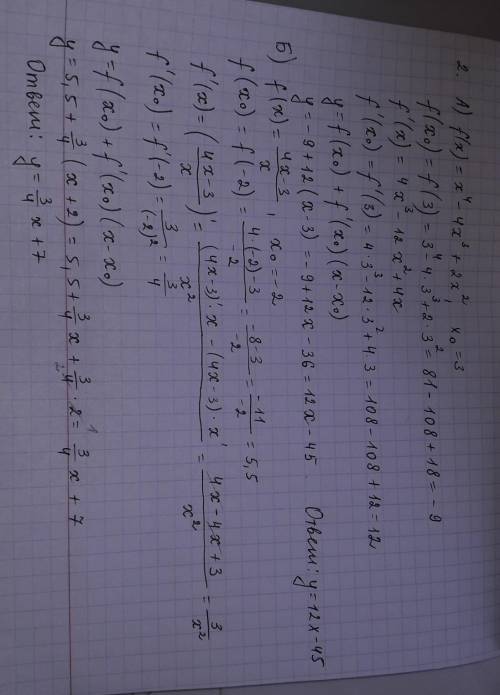 2. А) f'(x) = x⁴ - 4x³ + 2x², x₀ = 3
f(x₀) = f(3) = 3⁴ - 4·3³ + 2·3² = 81 - 108 + 18 = -9
f'(x) = 4x³ - 12x² + 4x
f'(x₀) = f'(3) = 4·3³ - 12·3² + 4·3 = 108 - 108 + 12 = 12
y = f(x₀) + f'(x₀)(x - x₀)
y = -9 + 12(x - 3) = -9 + 12x - 36 = 12x - 45. Ответ: y = 12x - 45
Б) f(x) = (4x-3)/x, x₀ = -2
f(x₀) = f(-2) = (4·(-2)-3)/-2 = (-8-3)/-2 = -11/-2 = 5,5
f'(x) = ((4x-3)/x)' = ((4x-3)'x - (4x-3)·x')/x² = (4x - 4x + 3)/x² = 3/x²
f'(x₀) = f'(-2) = 3/(-2)² = 3/4
y = f(x₀) + f'(x₀)(x - x₀)
y = 5,5 + 3/4 (x + 2) = 5,5 + 3/4 x + 3/4 · 2 = 3/4 x + 7
Ответ: y = 3/4 x + 7